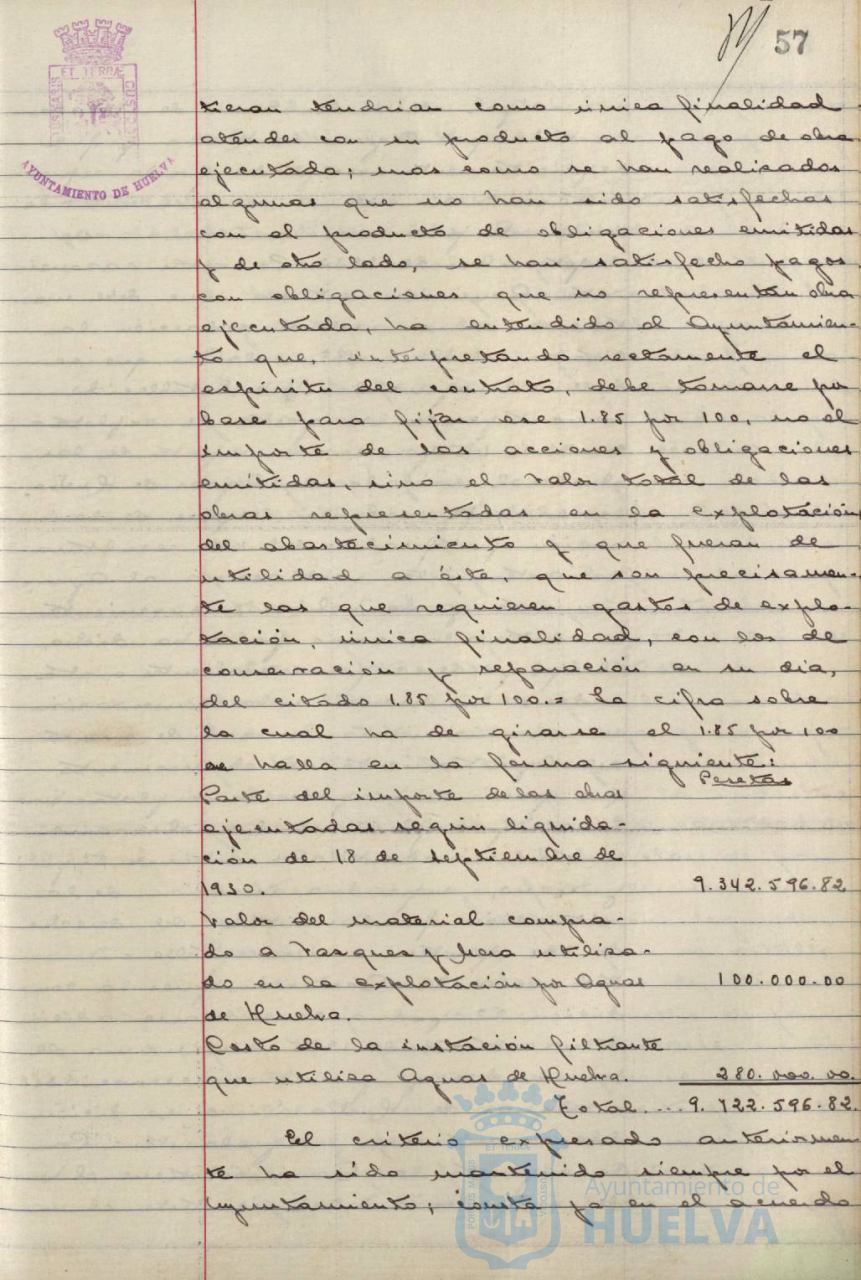 57
ET TERRÆ
CUSTODIA
AYUNTAMIENTO DE HUELVA
tieran tendrian como única finalidad
atender con su producto al pago de obra
ejecutada; mas como se han realizados
algunas que no han sido satisfechas
con el producto de obligaciones emitidas
y de otro lado, se han satisfecho pagos
con obligaciones que no representan obra
ejecutada, ha entendido el Ayuntamien-
to que, interpretando rectamente el
espiritu del contrato, debe tomarse por
base para fijar ese 1.85 por 100, no el
importe de las acciones y obligaciones
emitidas, sino el valor total de las
obras representadas en la explotación
del abastecimiento y que fueran de
utilidad a éste, que son precisamen-
te las que requieren gastos de explo-
tación, única finalidad, con los de
conservación y reparación en su dia,
del citado 1.85 por 100.= La cifra sobre
la cual ha de girarse el 1.85 por 100
se halla en la forma siguiente:
Pesetas
Parte del importe de las obras
ejecutadas según liquida-
ción de 18 de septiembre de
1930. 9.342.596.82
Valor del material compra-
do a Vazques y para utilisa-
do en la explotación por Aguas 100.000.00
de Huelva.
Costo de la instación filtrante
que utilisa Aguas de Huelva. 280.000.00.
Total ... 9.722.596.82.
El criterio expresado anteriormen-
te ha sido mantenido siempre por el
Ayuntamiento; consta ya en el acuerdo
Ayuntamiento de
HUELVA